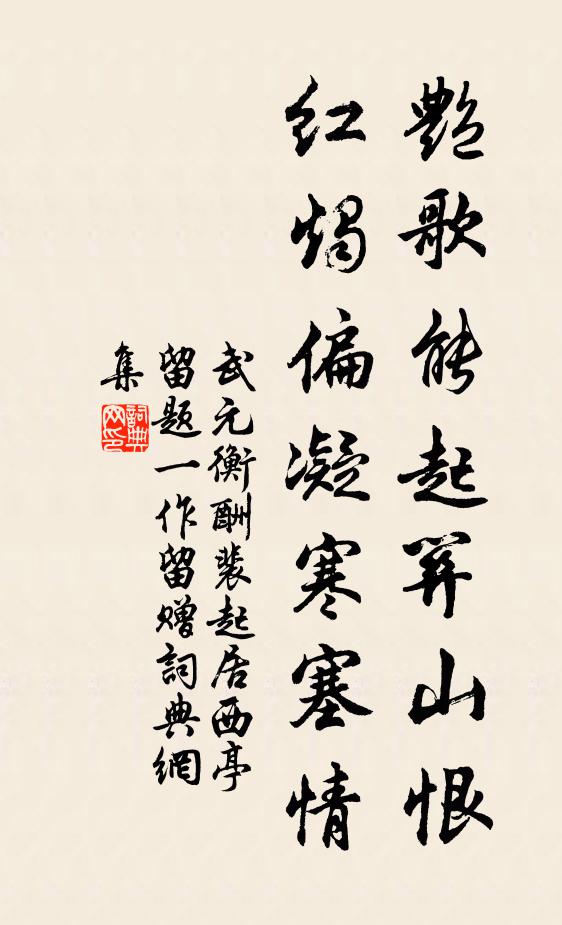 艳歌能起關山恨
红燭偏凝寒塞情
武元衡酬裴起居西亭
留题一作留赠詞典網
集
詞典
网印